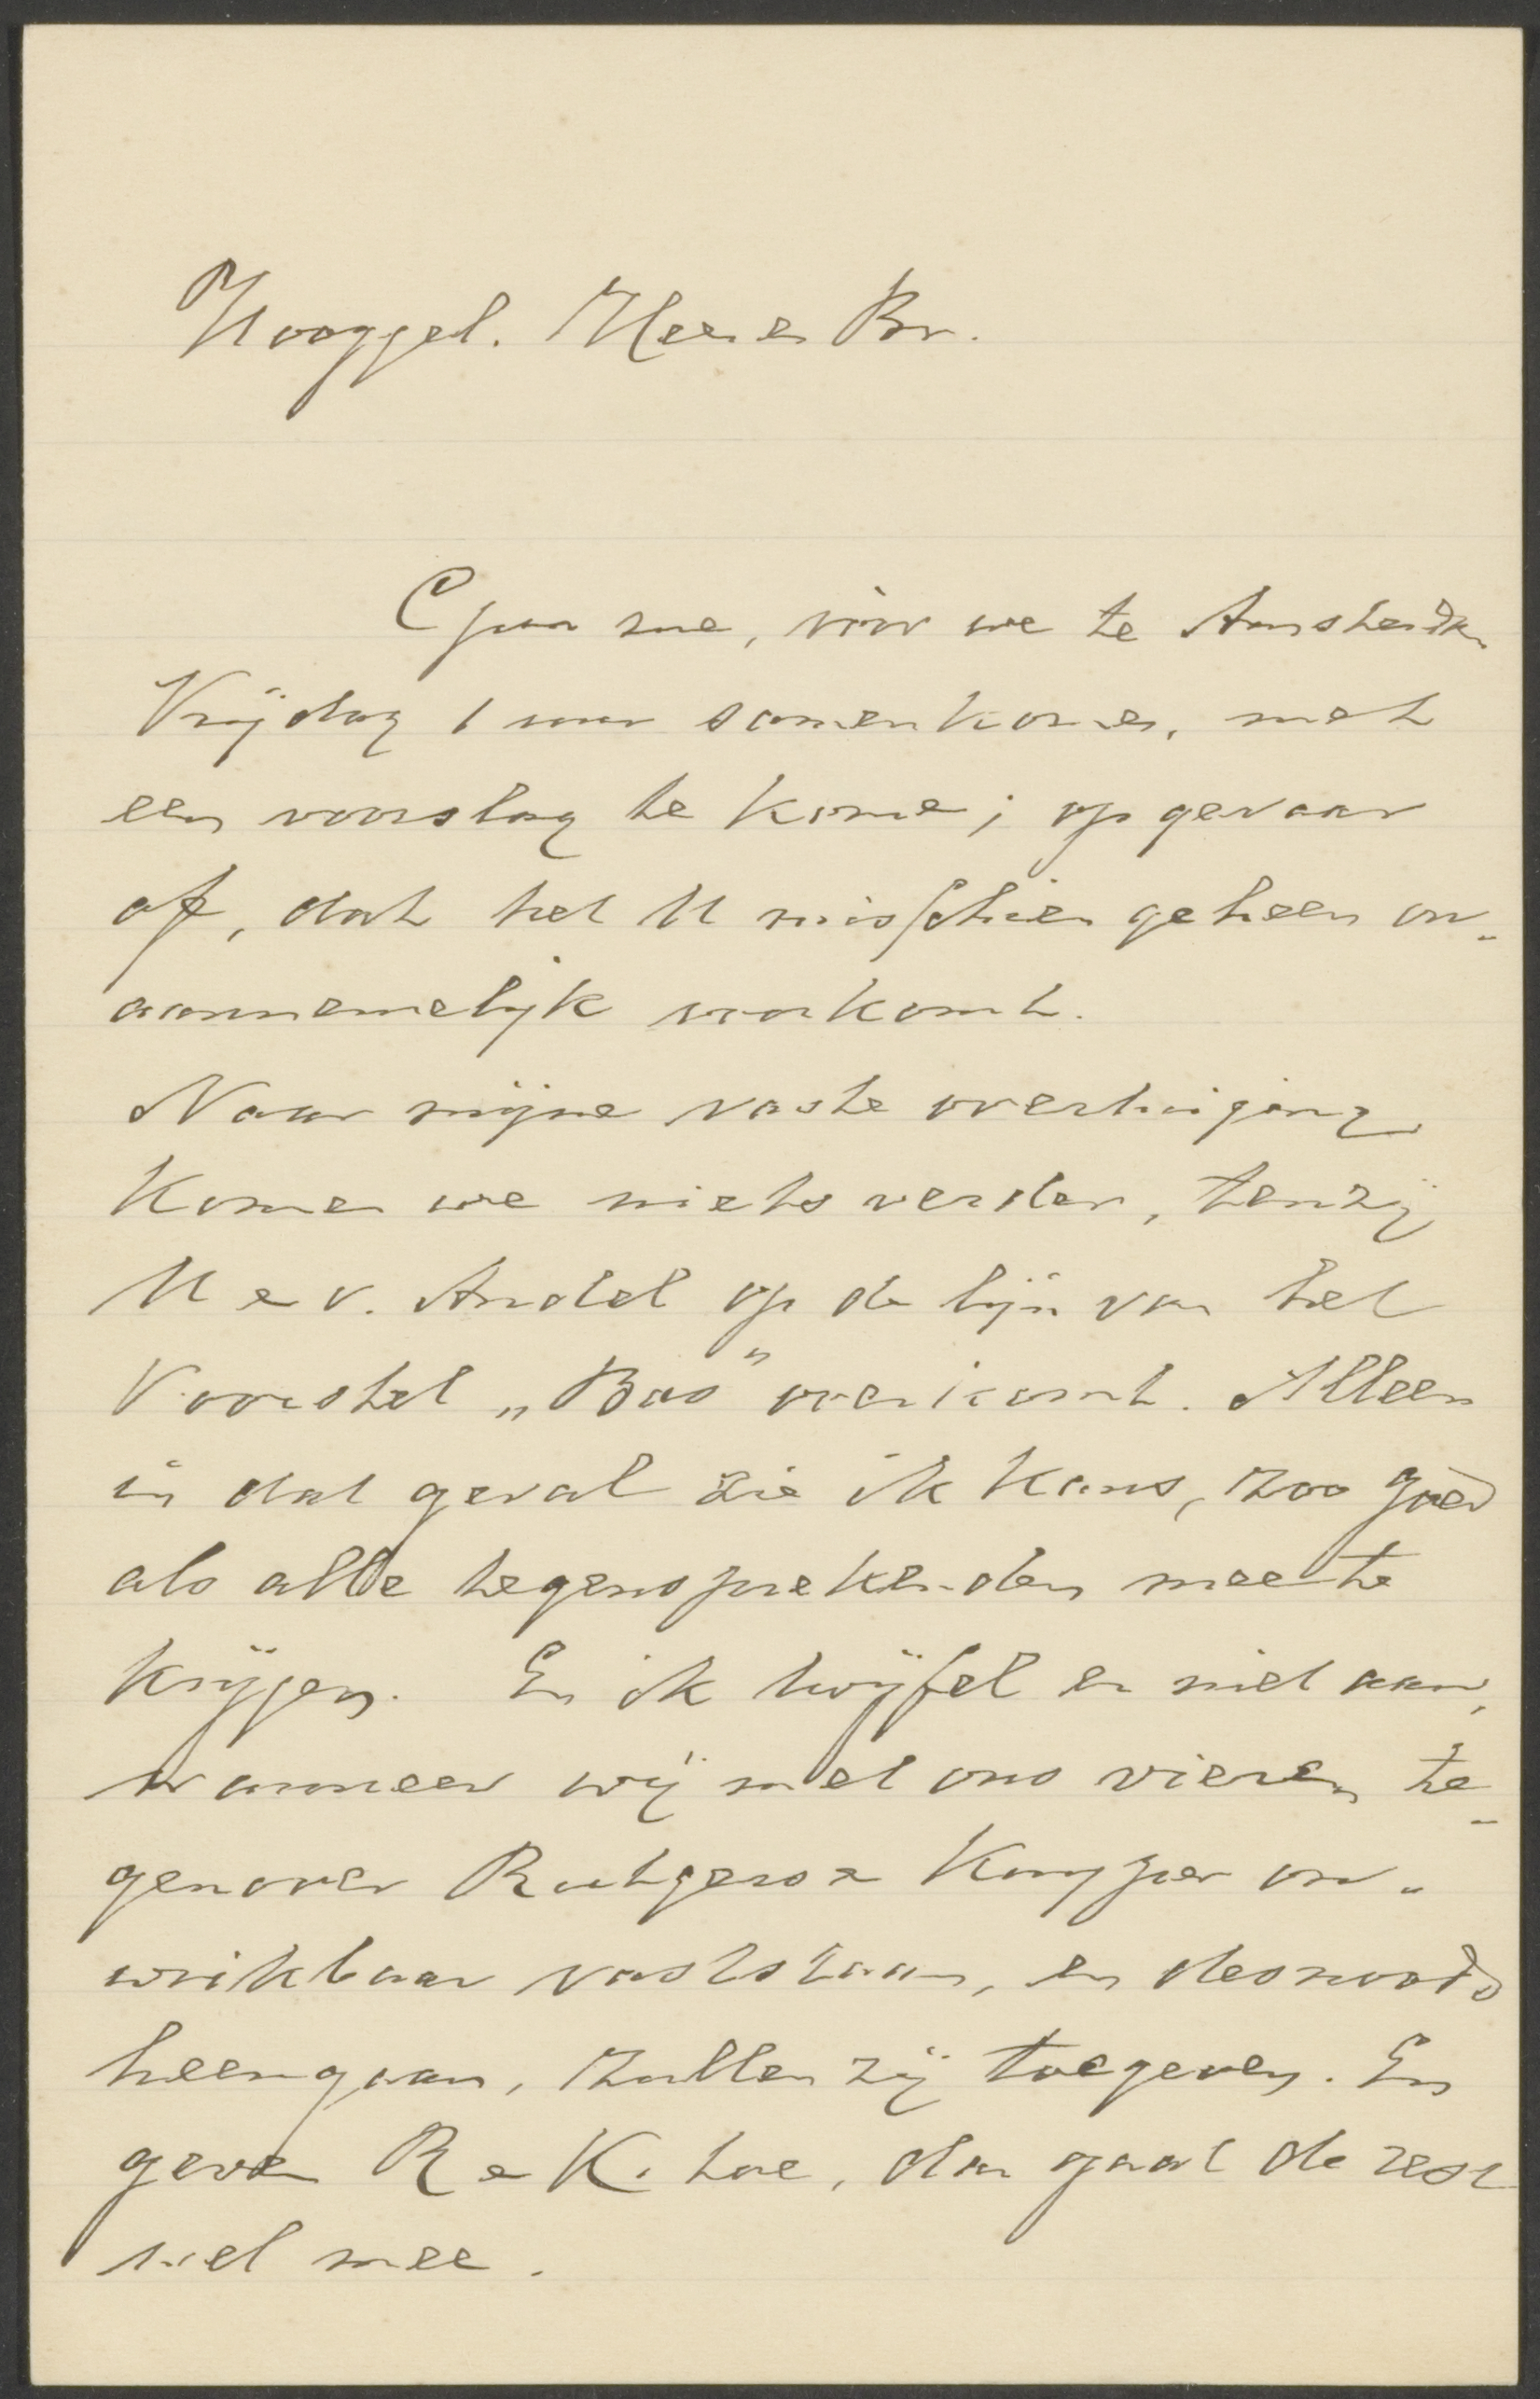 Hooggel. Heer en Br.
me, vóór we te Amsterdam
Vrijdag 1 uur samenkomen, met
een voorslag te komen; op gevaar
af, dat het U misschien geheel on-
aannemelijk voorkomt.
Naar mijne vaste overtuiging
komen we niets verder, tenzij
U e v. Andel op de lijn van het
Voorstel „Bas" overkomt. Alleen
in dat geval zie ik kans, zoo goed
als alle tegensprekenden mee te
krijgen. En ik twijfel er niet aan,
wanneer wij met ons vieren te-
genover Rutgers e Kuyper on-
wrikbaar vaststaan, en desnoods
heengaan, zullen zij toegeven. En
geven R e K. toe, dan gaat de rest
wel mee.